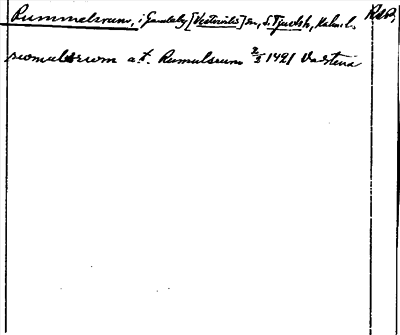 Rummelsrum, i Gamleby [Västerviks] sn, S. Tjusts h, Kalm. l.
romulsrwm a.f. Rumulsrum 2/5 1421 Vadstena